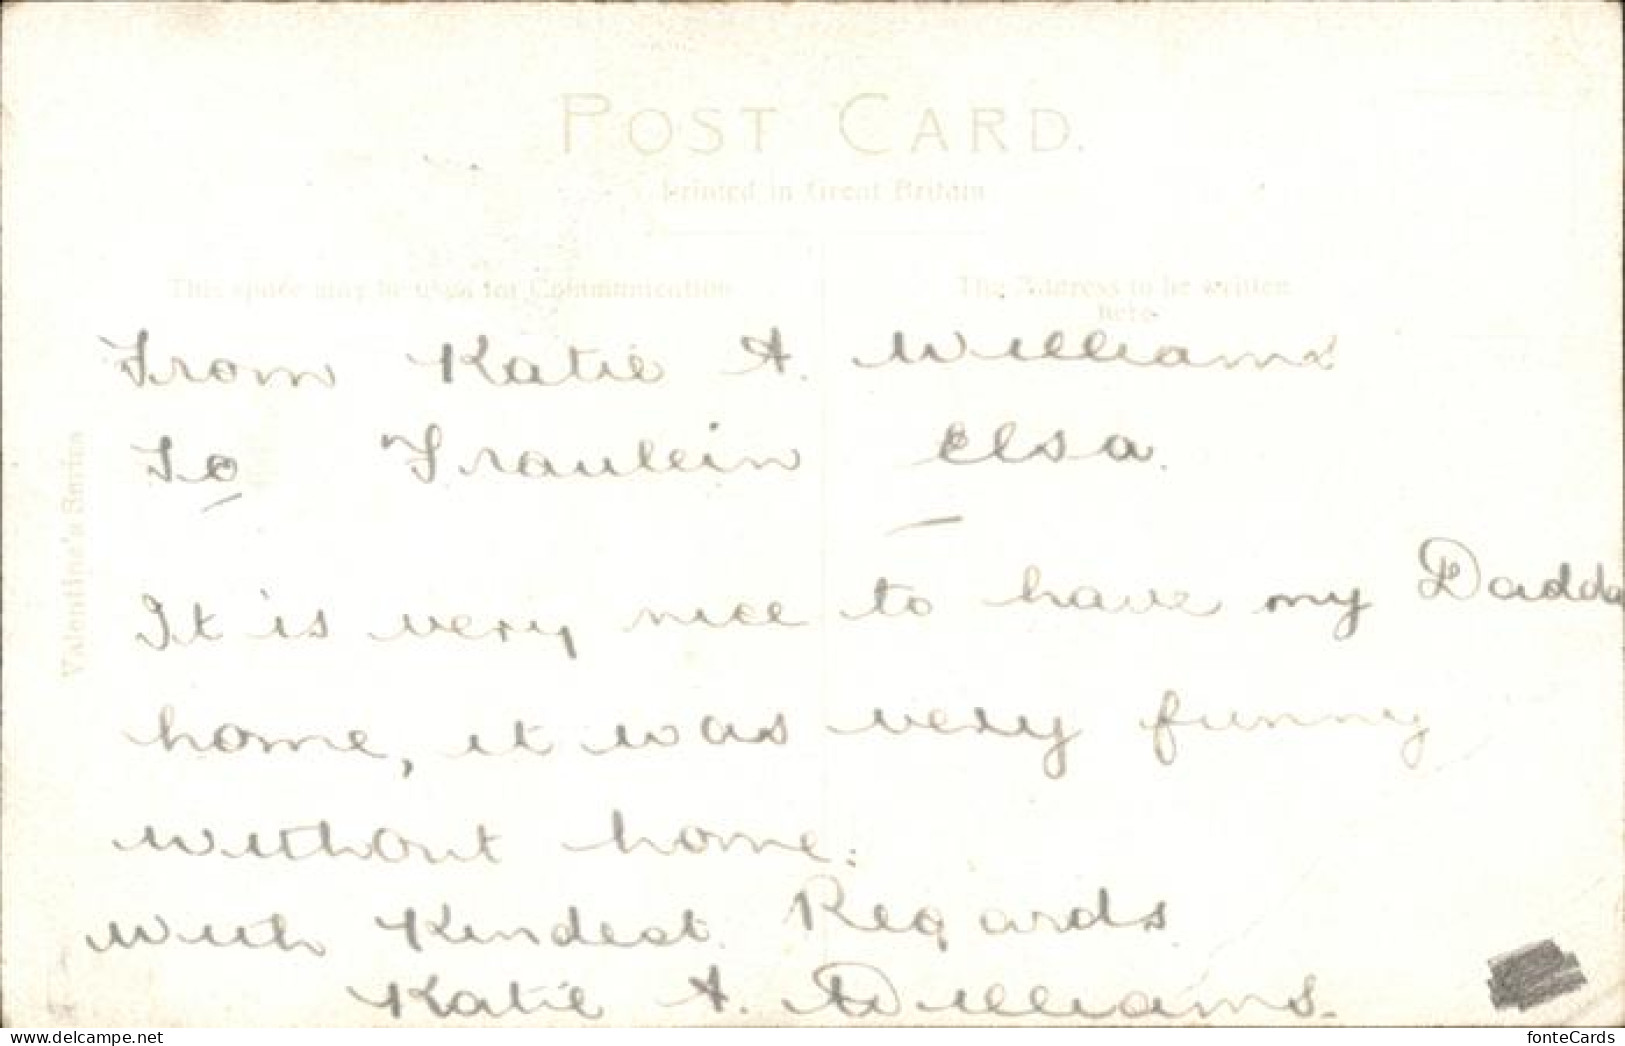 POST CARD.
Printed in Great Britain
This space may be used for Communication
The Address to be written
here
Valentine's Series
From Katie A. Williams
To Fraulein Elsa.
It is very nice to have my Dadda
home, it was very funny
without home.
With Kindest Regards
Katie A. Williams.
www.delcampe.net
fonteCards